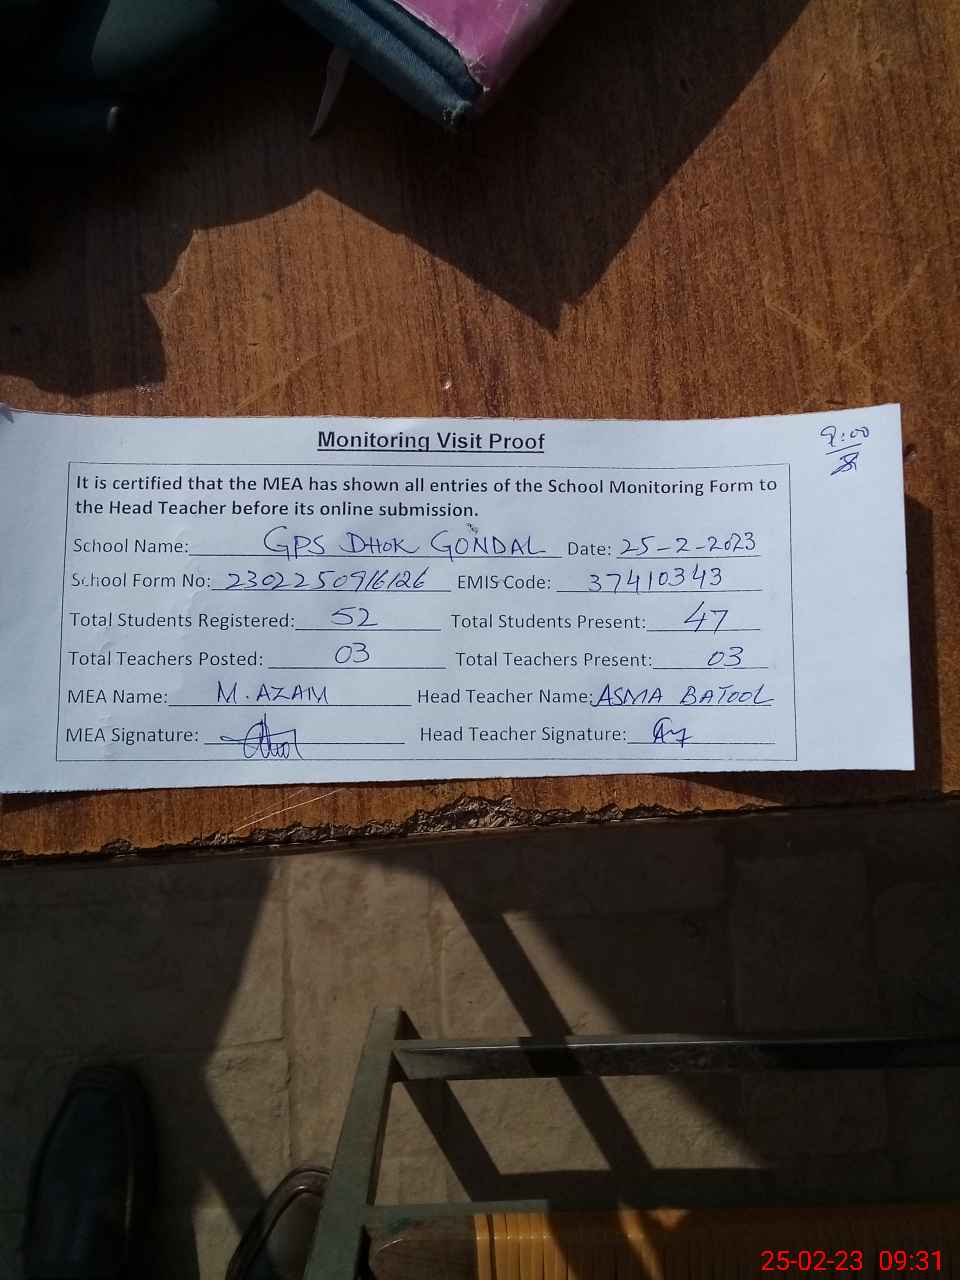 Monitoring Visit Proof
9:00
It is certified that the MEA has shown all entries of the School Monitoring Form to
the Head Teacher before its online submission.
School Name: GPS DHOK GONDAL Date: 25-2-2023
School Form No: 2302250916126 EMIS Code: 37410343
Total Students Registered: 52 Total Students Present: 47
Total Teachers Posted: 03 Total Teachers Present: 03
MEA Name: M. AZAM Head Teacher Name: ASMA BATOOL
MEA Signature: Head Teacher Signature:
25-02-23 09:31